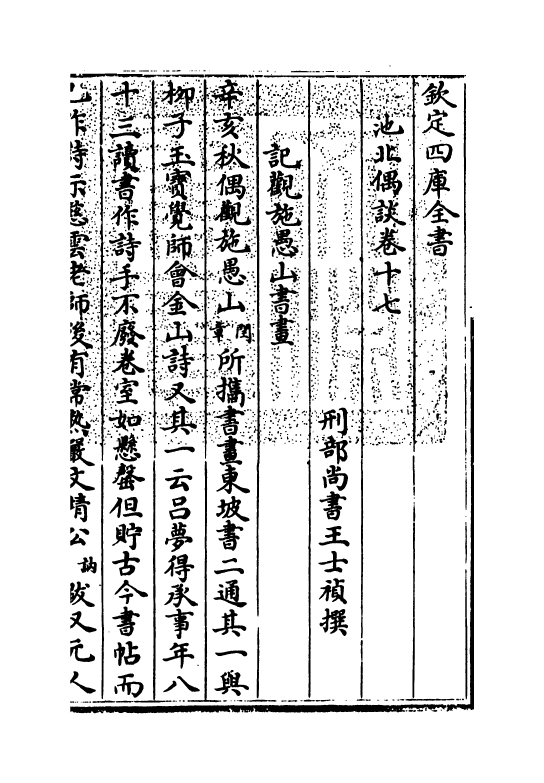 欽定四庫全書
池北偶談卷十七
刑部尚書王士禎撰
記觀施愚山書畫
辛亥秋偶觀施愚山閏章所攜書畫東坡書二通其一與
柳子玉寶覺師會金山詩又其一云呂夢得承事年八
十三讀書作詩手不廢卷室如懸罄但貯古今書帖而
已作詩示慈雲老師後有常熟嚴文靖公訥跋又元人